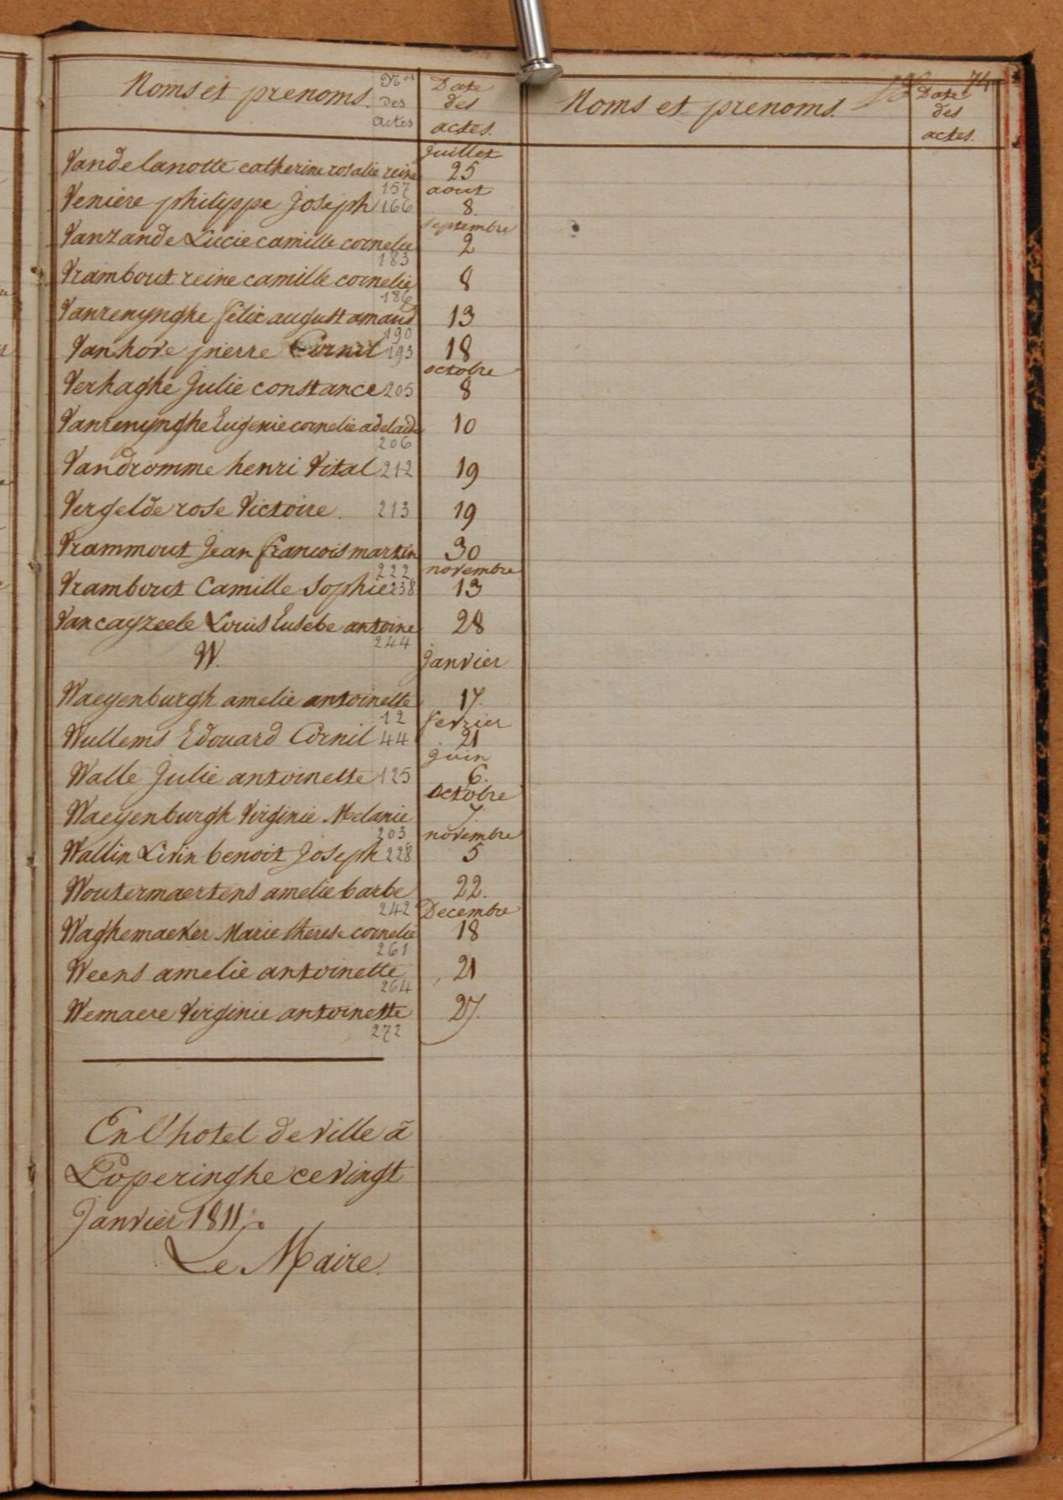 Noms et prenoms. Nos des actes Date des actes. Noms et prenoms. Date des actes. 74
Juillet
Vandelanotte catherine rosalie reine 157 25
aout
Veniere philippe Joseph 166 8.
septembre
Vanzande Lucie camille cornelie 183 2
Trambout reine camille cornelie 186 8
Vanrenynghe felix august amand 190 13
Vanhove pierre Cornil 193 18
octobre
Verhaghe Julie constance 205 8
Vanrenynghe Eugenie cornelie adelaide 206 10
Vandromme henri Vital 212 19
Vergelde rose Victoire. 213 19
Trammout Jean francois martin 222 30
novembre
Trambout Camille Sophie 238 13
Vancayzeele Louis Eusebe antoine 244 28
W. Janvier
Waeyenburgh amelie antoinette 12 17.
fevrier
Wullems Edouard Cornil 44 21
juin
Walle Julie antoinette 125 6.
octobre
Waeyenburgh Virginie Melanie 203 7.
novembre
Wallin Livin benoit Joseph 228 5
Woutermaertens amelie barbe 242 22.
Decembre
Waghemaeker Marie therese cornelie 261 18
Weens amelie antoinette 264 21
Wemaere Virginie antoinette 272 27.
En l'hotel de ville à
Poperinghe ce vingt
Janvier 1811.
Le Maire.